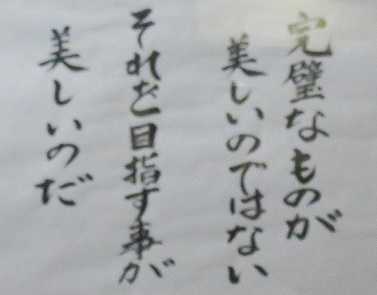 完璧なものが
美しいのではない
それを目指す事が
美しいのだ